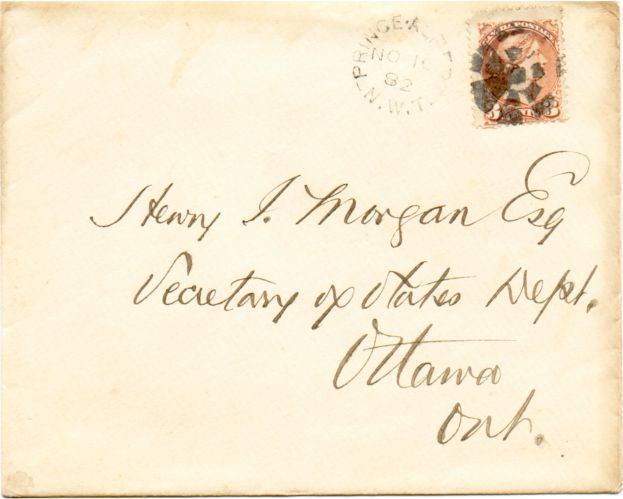 PRINCE-ALBERT
NO 16
82
N.W.T.
CANADA POSTAGE
3 CENTS 3
Henry J. Morgan Esq
Secretary of States Dept.
Ottawa
Ont.